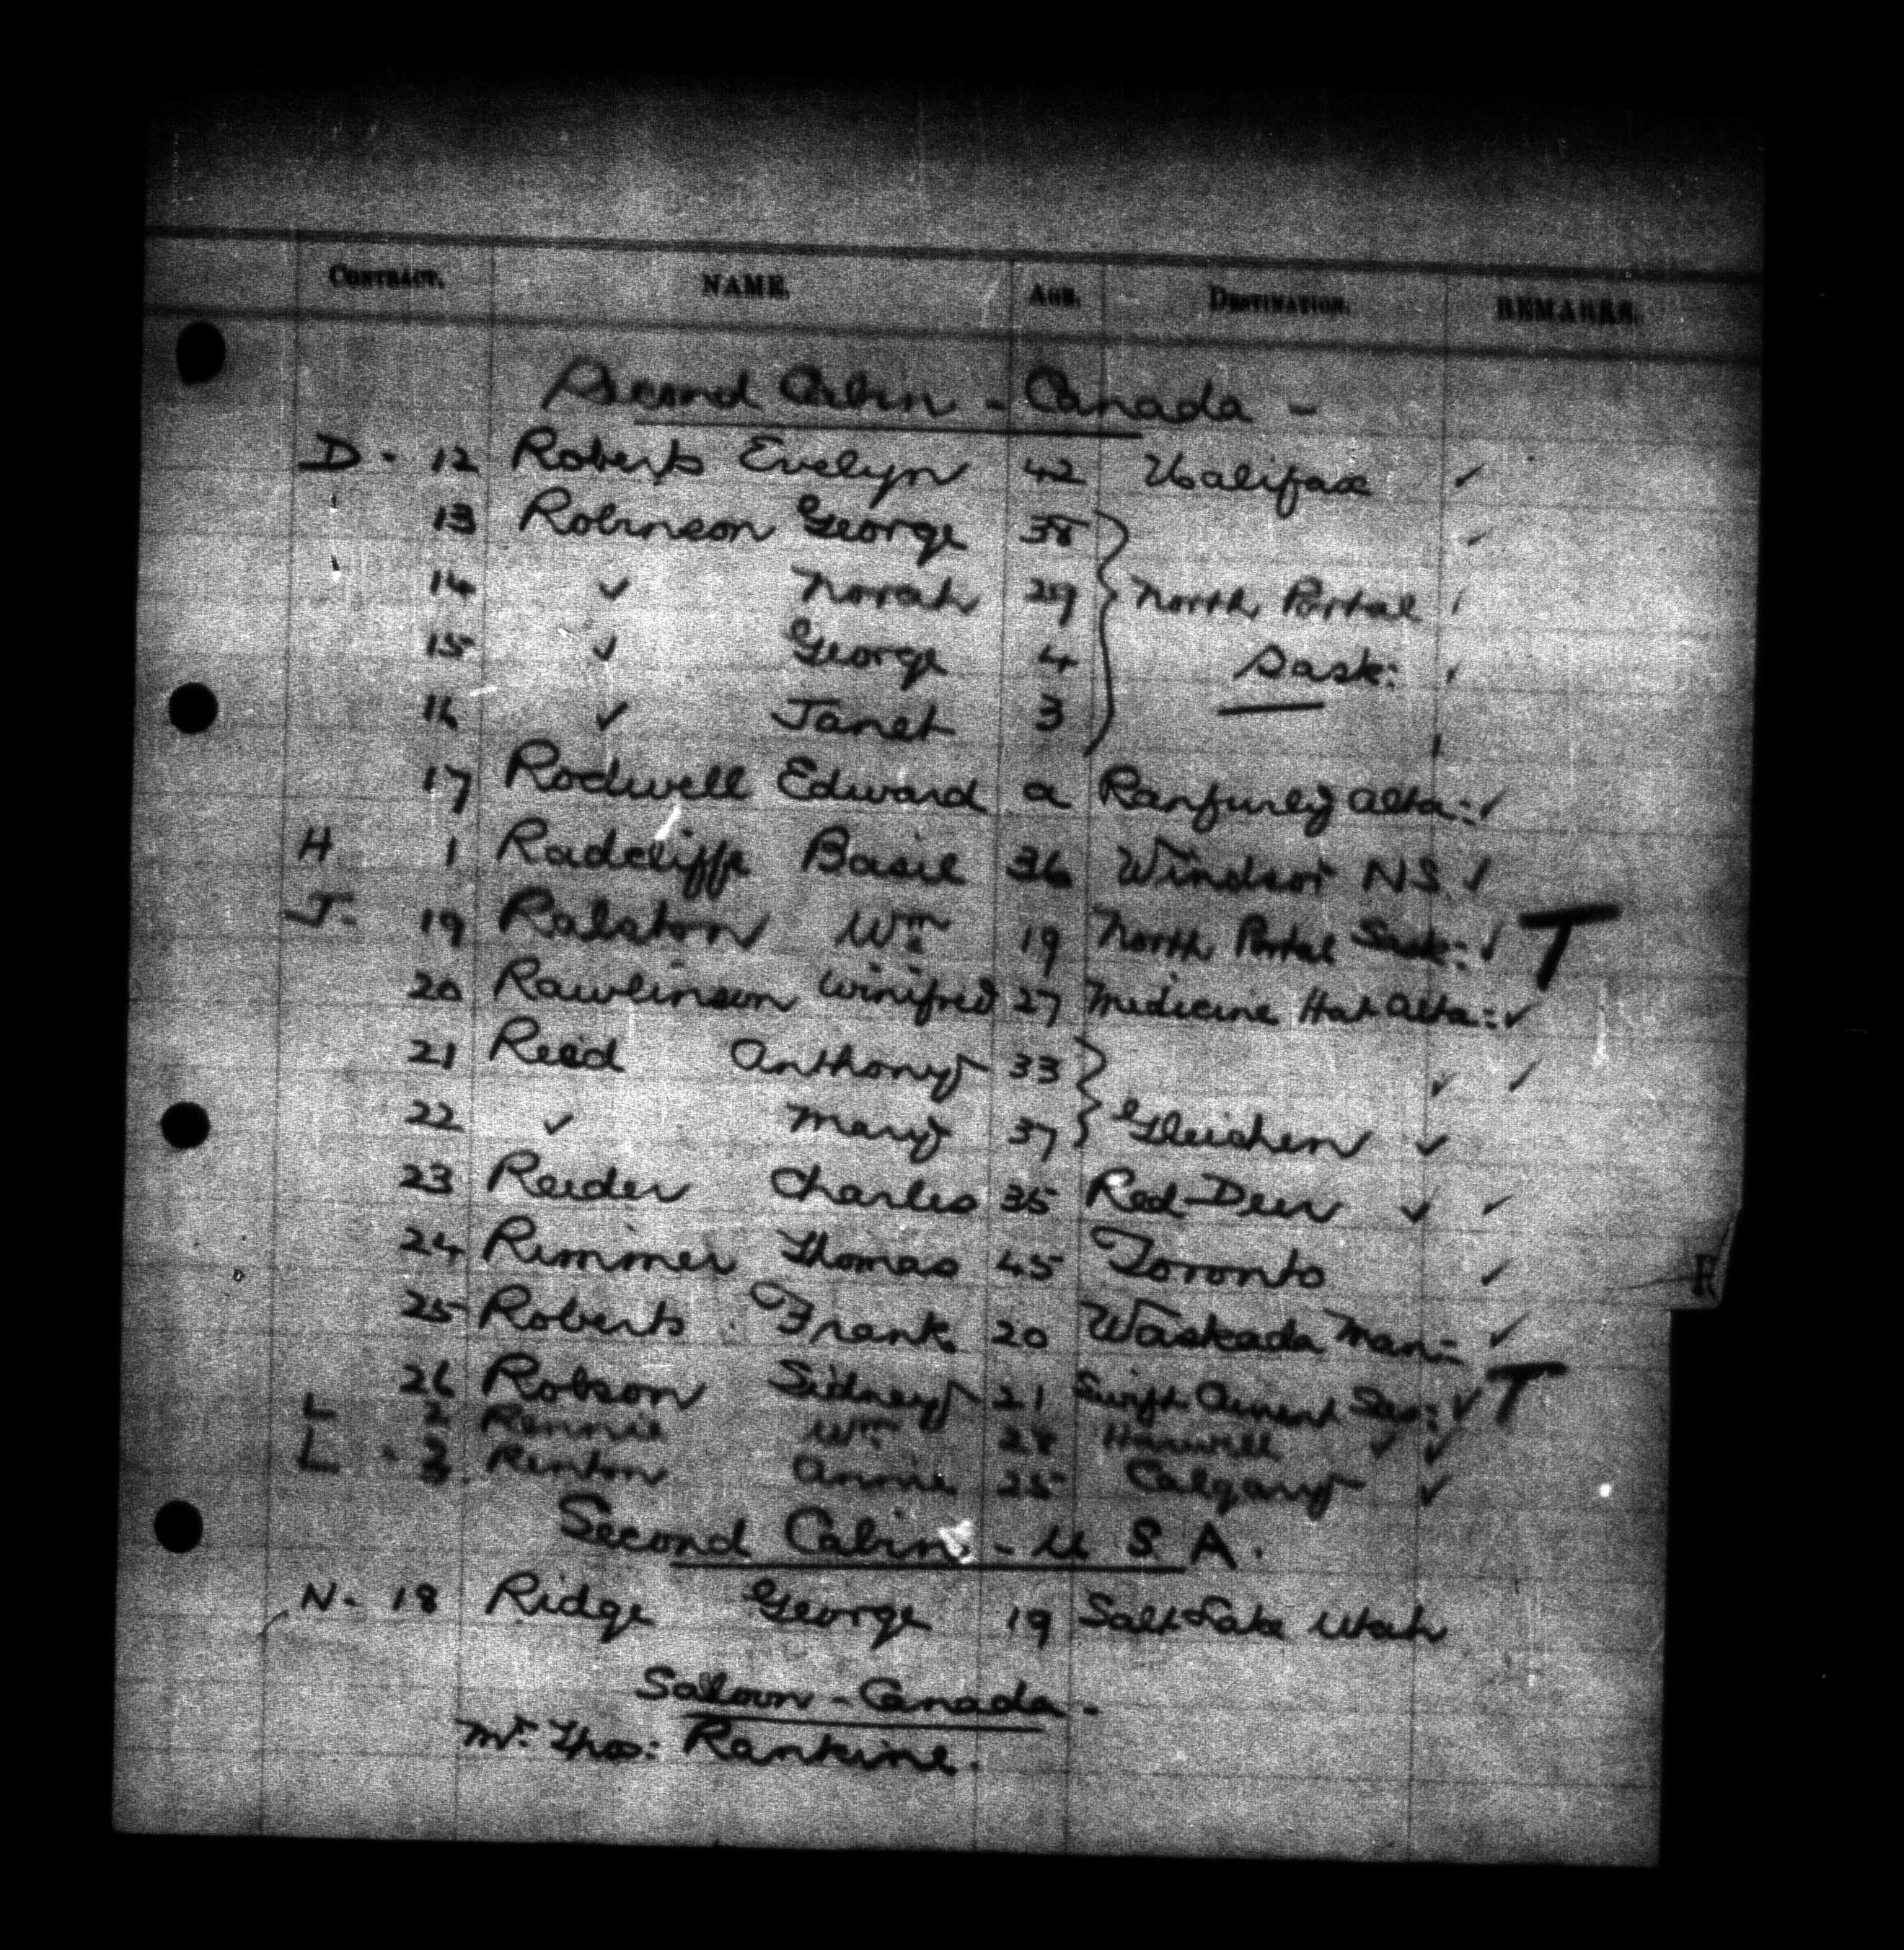 CONTRACT. NAME. AGE. DESTINATION. REMARKS.
Second Cabin - Canada -
D - 12 Roberts Evelyn 42 Halifax ✓
13 Robinson George 38 ✓
14 ✓ Norah 29 North Portal
15 ✓ George 4 Sask:
16 ✓ Janet 3
17 Rodwell Edward a Ranfurly Alta: ✓
H 1 Radcliffe Basil 36 Windsor NS ✓
J- 19 Ralston Wm 19 North Portal Sask: ✓ T
20 Rawlinson Winifred 27 Medicine Hat Alta: ✓
21 Reed Anthony 33 ✓ ✓
22 ✓ Mary 37 Gleichen ✓
23 Reider Charles 35 Red-Deer ✓ ✓
24 Rimmer Thomas 45 Toronto ✓
R
25 Roberts Frank 20 Waskada Man: ✓
26 Robson Sidney 21 Swift Current ✓ T
L 2 Rennie Wm 28 ✓ ✓
L - 3 Renton Annie 25 Calgary ✓
Second Cabin - U S A.
N- 18 Ridge George 19 Salt Lake Utah
Saloon - Canada -
Mr. Thos: Rankine.